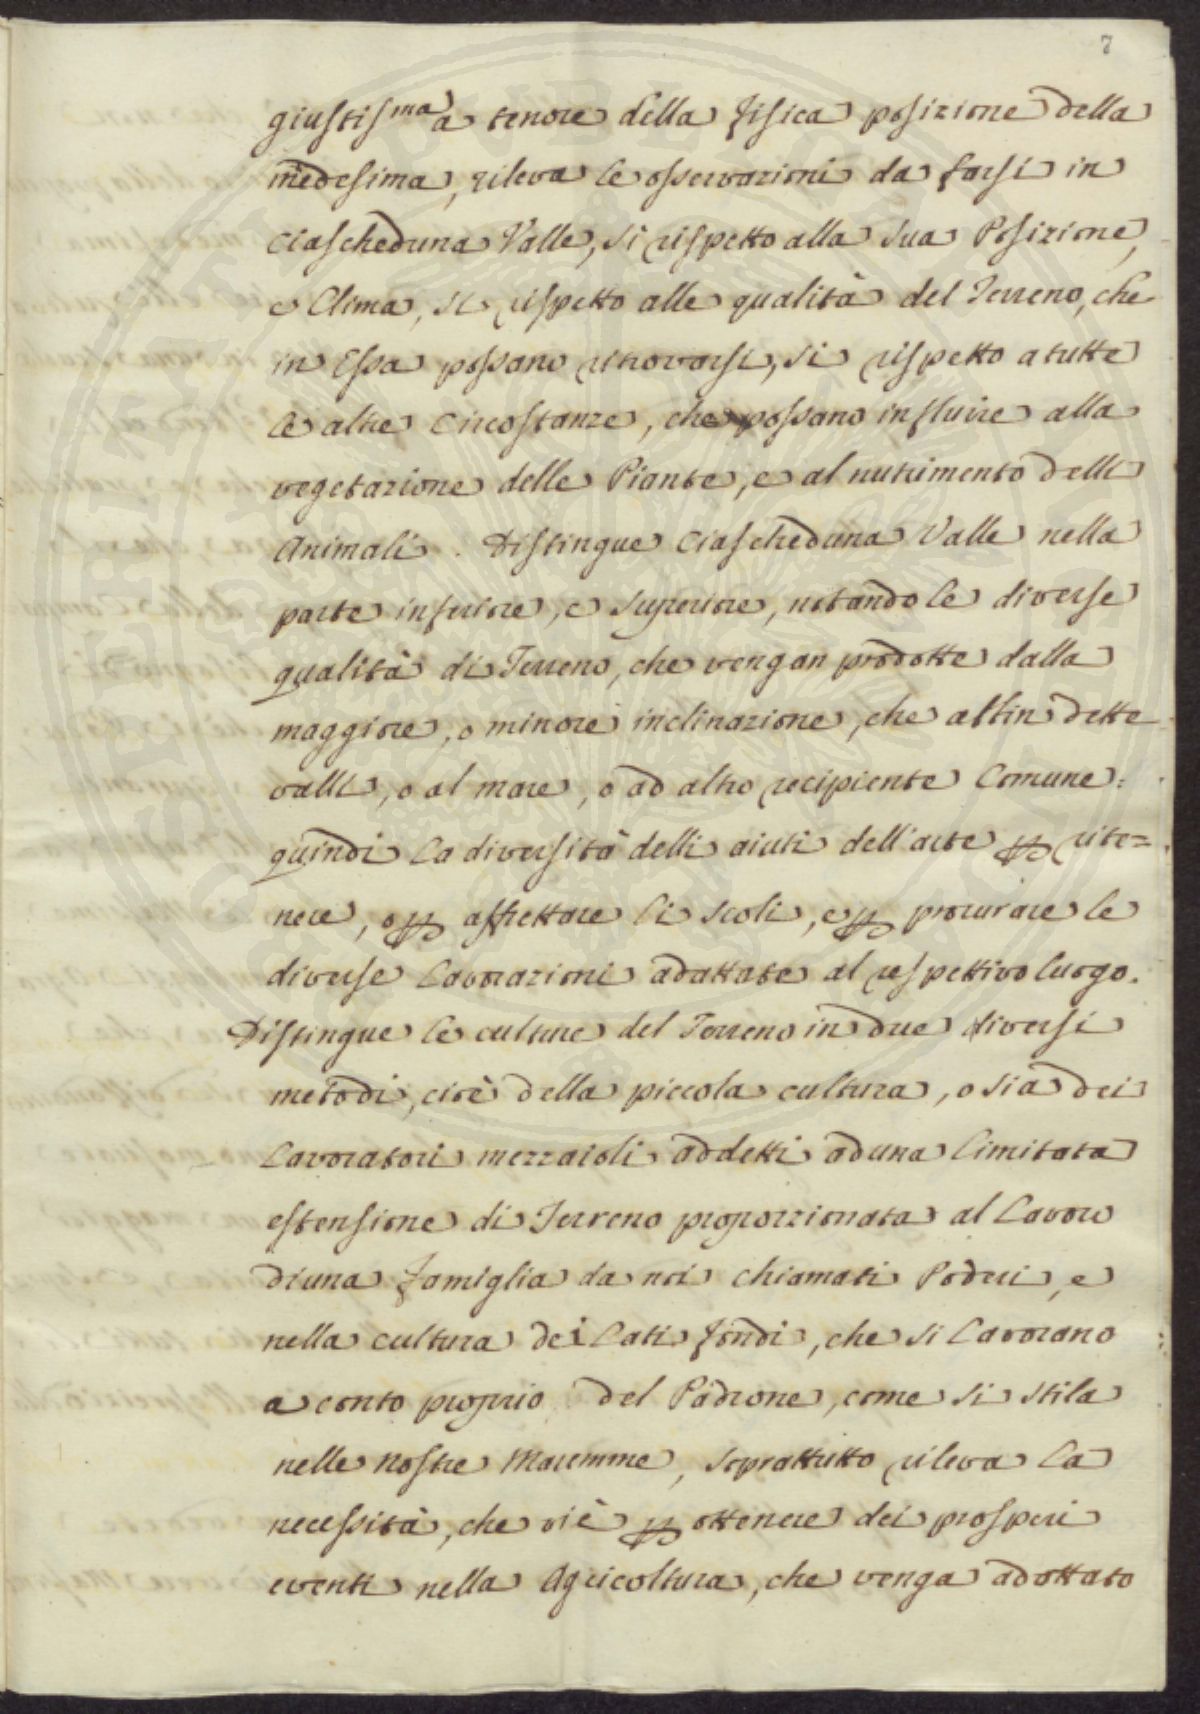 7
giustis.ma a tenore della fisica posizione della
medesima, rileva le osservazioni da farsi in
ciascheduna Valle, si rispetto alla sua Posizione,
e Clima, si rispetto alle qualità del Terreno, che
in Essa possano ritrovarsi, si rispetto a tutte
le altre Circostanze, che possano influire alla
vegetazione delle Piante, e al nutrimento delli
Animali. Distingue Ciascheduna Valle nella
parte inferiore, e superiore, notando le diverse
qualità di Terreno, che vengan prodotte dalla
maggiore, o minore inclinazione, che abbin dette
valli, o al mare, o ad altro recipiente Comune:
quindi la diversità delli aiuti dell'arte p rite=
nere, o p affrettare li scoli, e p procurare le
diverse Lavorazioni adattate al respettivo luogo.
Distingue le culture del Terreno in due diversi
metodi, cioè della piccola cultura, o sia dei
Lavoratori mezzaioli addetti ad una limitata
estensione di Terreno proporzionata al Lavoro
di una famiglia da noi chiamati Poderi, e
nella cultura dei Lati fondi, che si Lavorano
a conto proprio del Padrone, come si stila
nelle nostre Maremme, soprattutto rileva la
necessità, che vi è p ottenere dei prosperi
eventi nella Agricoltura, che venga adottato